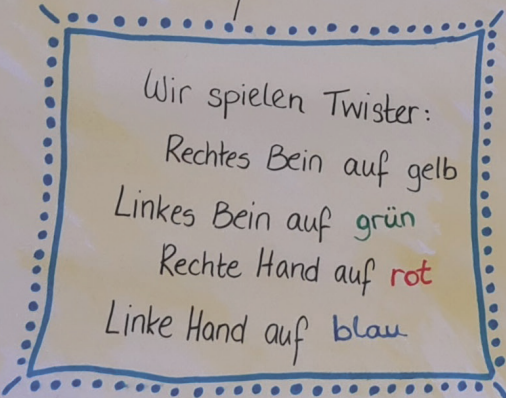 Wir spielen Twister:
Rechtes Bein auf gelb
Linkes Bein auf grün
Rechte Hand auf rot
Linke Hand auf blau